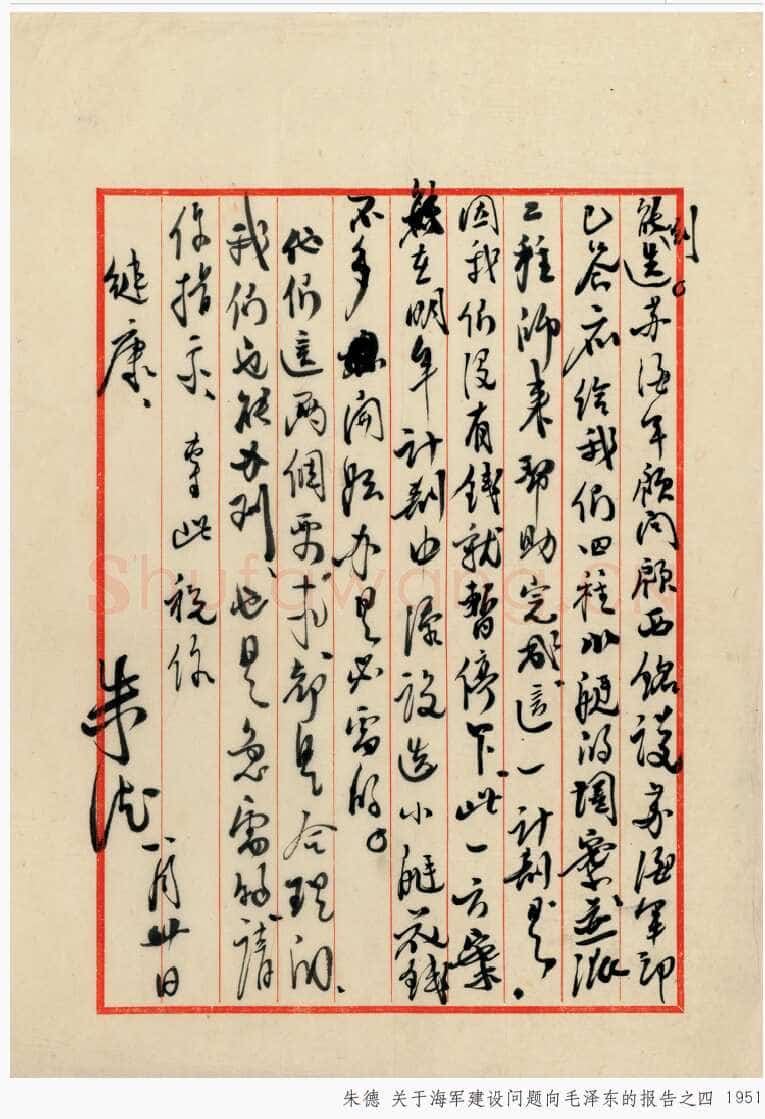 能造到。苏海军顾问顾西铭谈苏海军部
已答应给我们四种小艇的图案并派
工程师来帮助完成这一计划。
因我们没有钱就暂停下，此一方案
在明年计划中添设造小艇花钱
不多开始办是必需的。
他们这两個要求都是合理的
我们也能办到，也是急需的，請
你指示、専此祝你
健康、
朱德
一月廿日
Shufawang.cn
朱德 关于海军建设问题向毛泽东的报告之四 1951